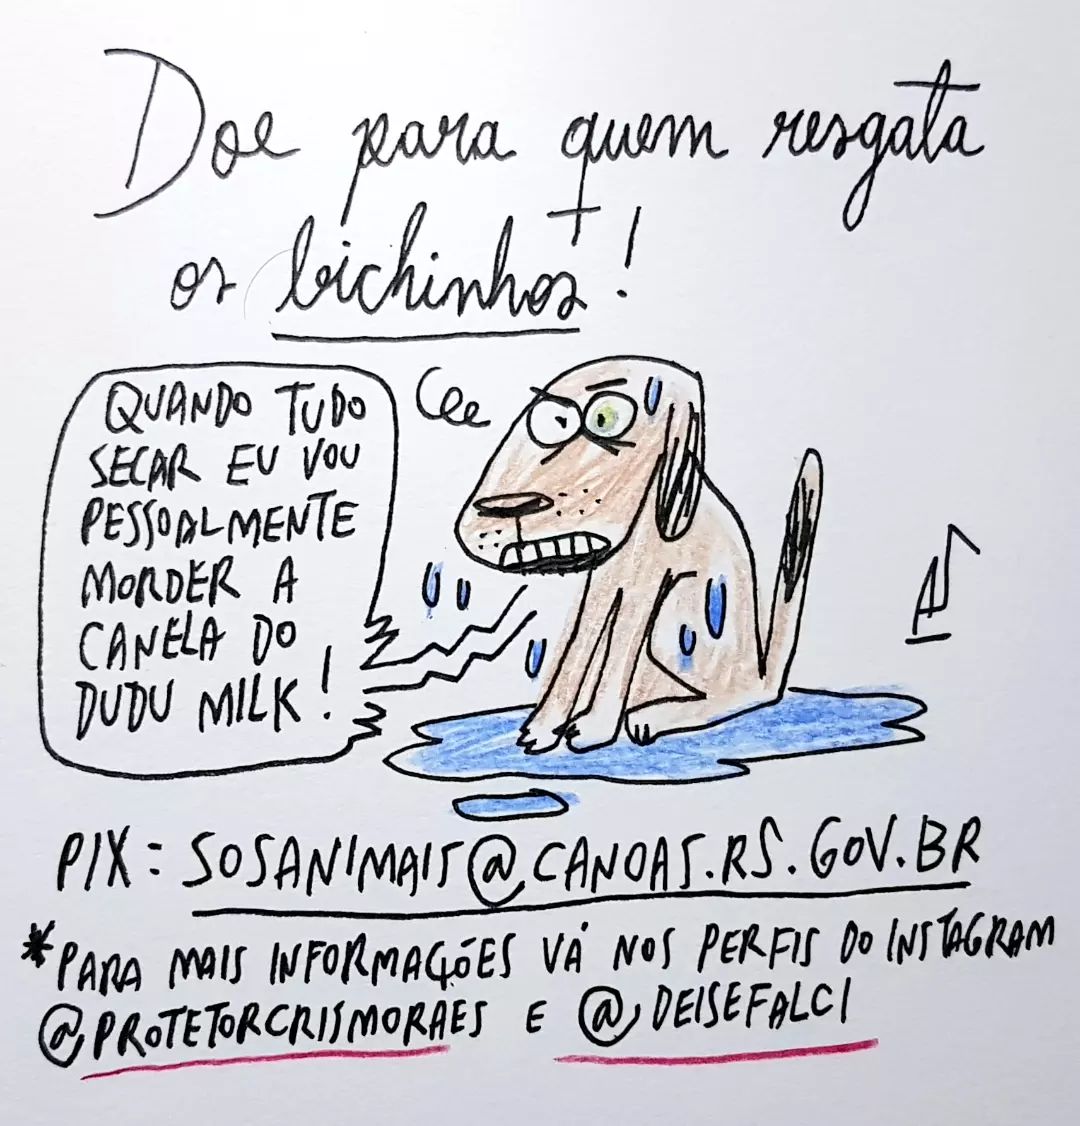 Doe para quem resgata
os bichinhos!
QUANDO TUDO
SECAR EU VOU
PESSOALMENTE
MORDER A
CANELA DO
DUDU MILK!
PIX: SOSANIMAIS@CANOAS.RS.GOV.BR
*PARA MAIS INFORMAÇÕES VÁ NOS PERFIS DO INSTAGRAM
@PROTETORCRISMORAES E @DEISEFALCI